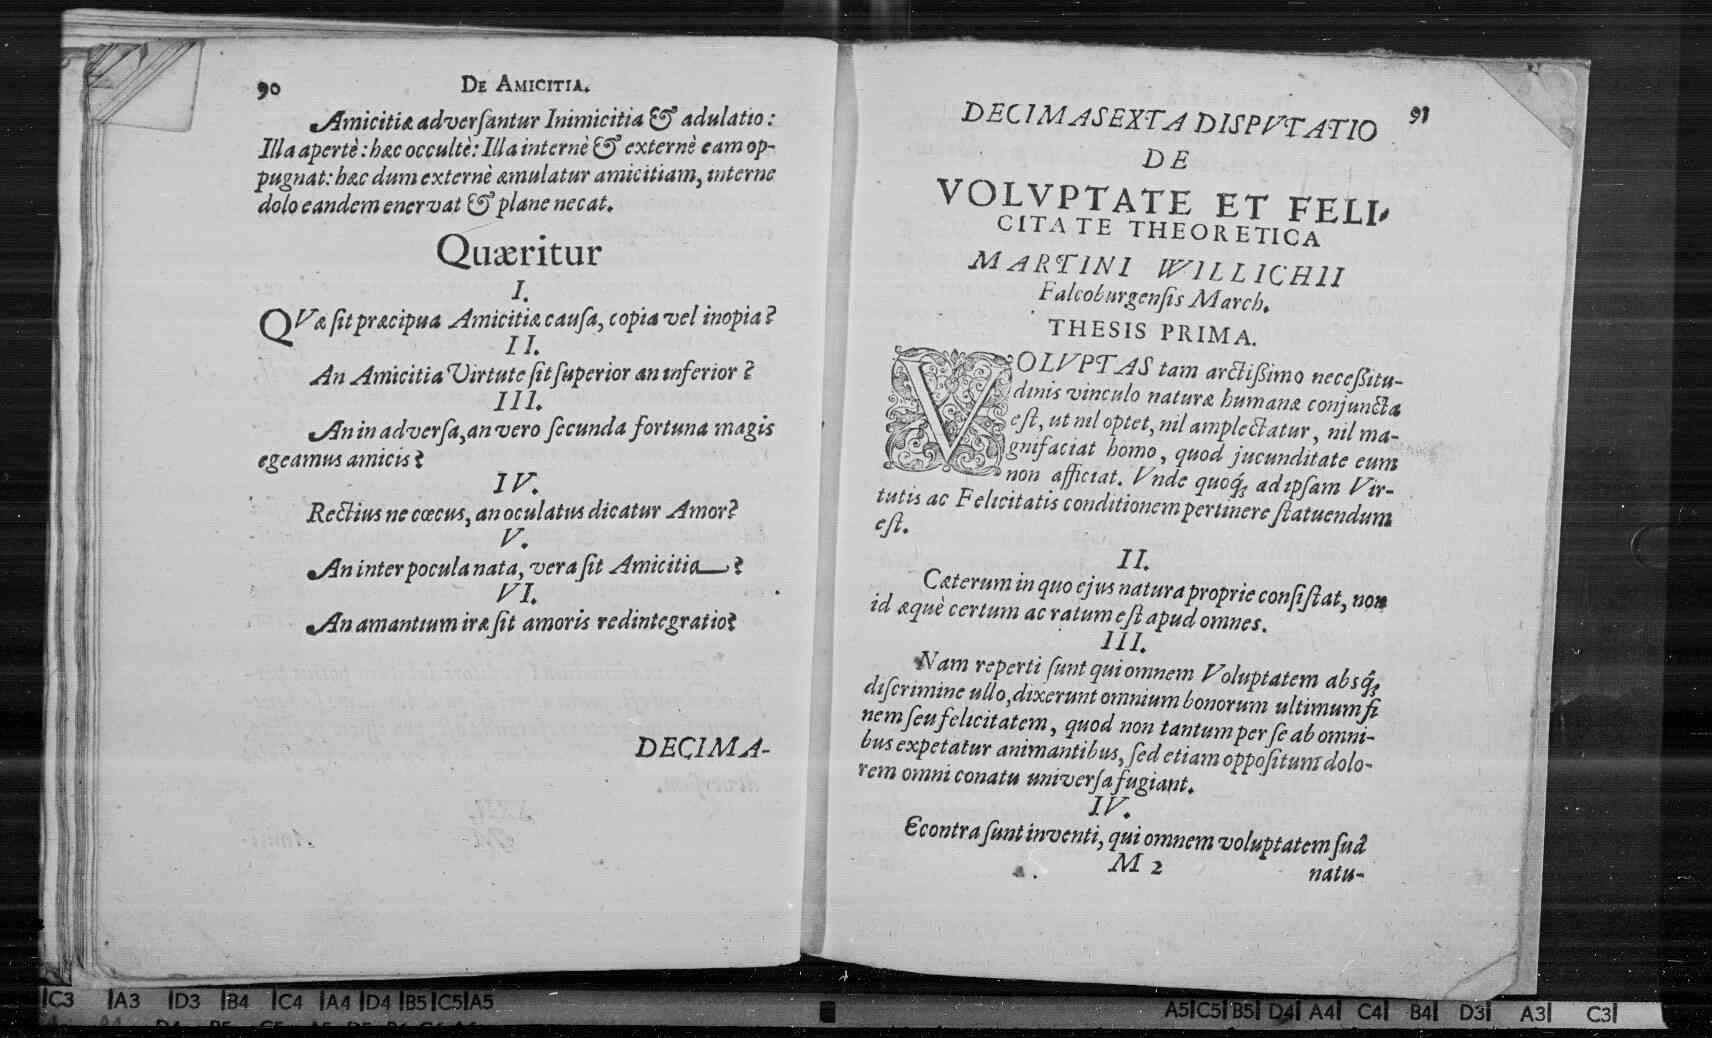 90
De Amicitia.
Amicitiæ adversantur Inimicitia & adulatio:
Illa apertè: hæc occultè: Illa internè & externè eam op-
pugnat: hæc dum externè æmulatur amicitiam, interne
dolo eandem enervat & plane necat.
Quæritur
I.
QVæ sit præcipua Amicitiæ causa, copia vel inopia?
II.
An Amicitia Virtute sit superior an inferior?
III.
An in adversa, an vero secunda fortuna magis
egeamus amicis?
IV.
Rectius ne cœcus, an oculatus dicatur Amor?
V.
An inter pocula nata, vera sit Amicitia?
VI.
An amantium iræ sit amoris redintegratio?
DECIMA-
91
DECIMASEXTA DISPVTATIO
DE
VOLVPTATE ET FELI-
CITATE THEORETICA
MARTINI WILLICHII
Falcoburgensis March.
THESIS PRIMA.
VOLVPTAS tam arctißimo neceßitu-
dinis vinculo naturæ humanæ conjuncta
est, ut nil optet, nil amplectatur, nil ma-
gnifaciat homo, quod jucunditate eum
non afficiat. Vnde quoq; ad ipsam Vir-
tutis ac Felicitatis conditionem pertinere statuendum
est.
II.
Cæterum in quo ejus natura proprie consistat, non
id æquè certum ac ratum est apud omnes.
III.
Nam reperti sunt qui omnem Voluptatem absq;
discrimine ullo, dixerunt omnium bonorum ultimum fi
nem seu felicitatem, quod non tantum per se ab omni-
bus expetatur animantibus, sed etiam oppositum dolo-
rem omni conatu universa fugiant.
IV.
Econtra sunt inventi, qui omnem voluptatem suâ
M 2
natu-
C3 A3 D3 B4 C4 A4 D4 B5 C5 A5
A5 C5 B5 D4 A4 C4 B4 D3 A3 C3